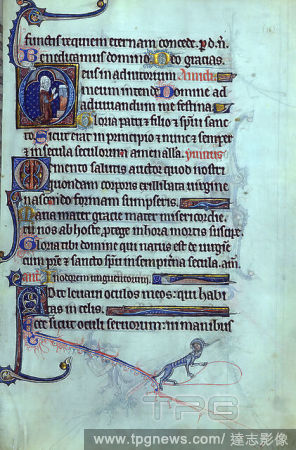 functis requiem eternam concede. p. d. n.
Benedicamus domino. Deo gracias.
Deus in adiutorium
meum intende. Domine ad
adiuvandum me festina.
Gloria patri et filio et spiritu sanc
to Sicut erat in principio et nunc et semper
et in secula seculorum amen alla.
Memento salutis auctor quod nostri
quondam corporis ex illibata virgine
nascendo formam sumpseris.
Maria mater gracie mater misericordie
tu nos ab hoste protege in hora mortis suscipe.
Gloria tibi domine qui natus es de virgine
cum patre et sancto spiritu in sempiterna secula. am.
In odorem unguentorum.
Ad te levavi oculos meos: qui habi
tas in celis.
Ecce sicut oculi servorum: in manibus
TPG
www.tpgnews.com/ 達志影像